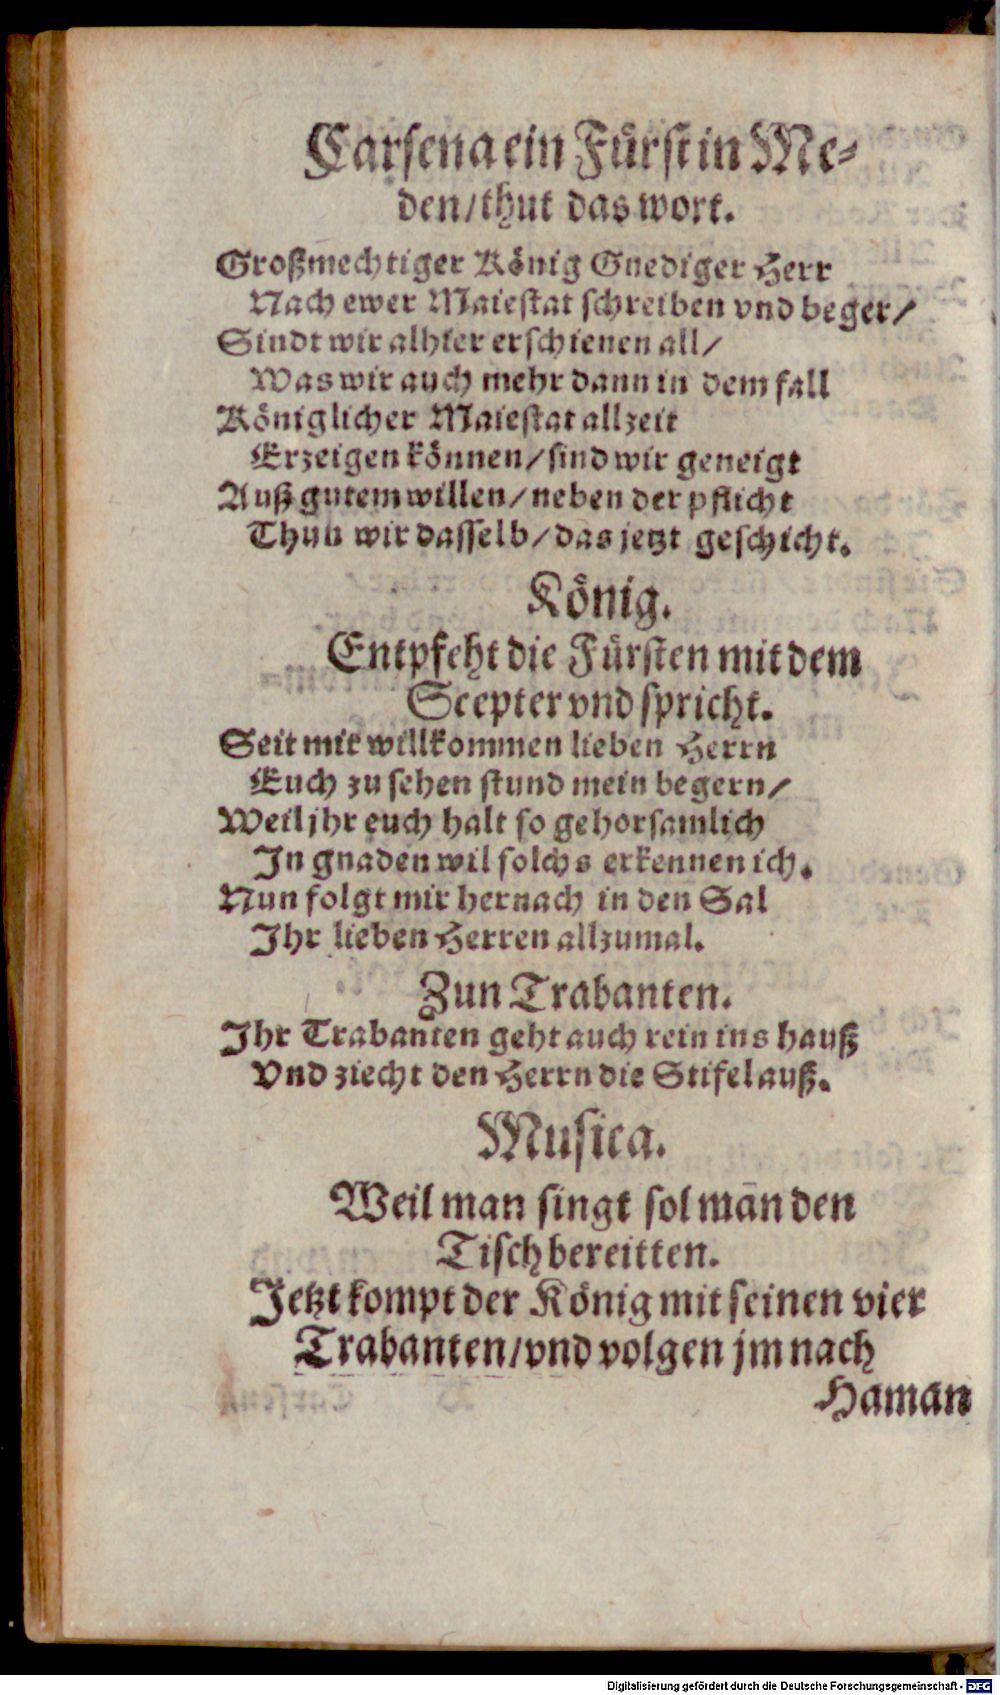 Carsena ein Fürst in Me-
den/thut das wort.
Großmechtiger König Gnediger Herr
Nach ewer Maiestat schreiben vnd beger/
Sindt wir alhier erschienen all/
Was wir auch mehr dann in dem fall
Königlicher Maiestat allzeit
Erzeigen können/sind wir geneigt
Auß gutem willen/neben der pflicht
Thun wir dasselb/das jetzt geschicht.
König.
Entpfeht die Fürsten mit dem
Scepter vnd spricht.
Seit mir willkommen lieben Herrn
Euch zu sehen stund mein begern/
Weil jhr euch halt so gehorsamlich
In gnaden wil solchs erkennen ich.
Nun folgt mir hernach in den Sal
Ihr lieben Herren allzumal.
Zun Trabanten.
Ihr Trabanten geht auch rein ins hauß
Vnd ziecht den Herrn die Stifel auß.
Musica.
Weil man singt sol man den
Tisch bereitten.
Jetzt kompt der König mit seinen vier
Trabanten/vnd volgen jm nach
Haman
Digitalisierung gefördert durch die Deutsche Forschungsgemeinschaft - DFG